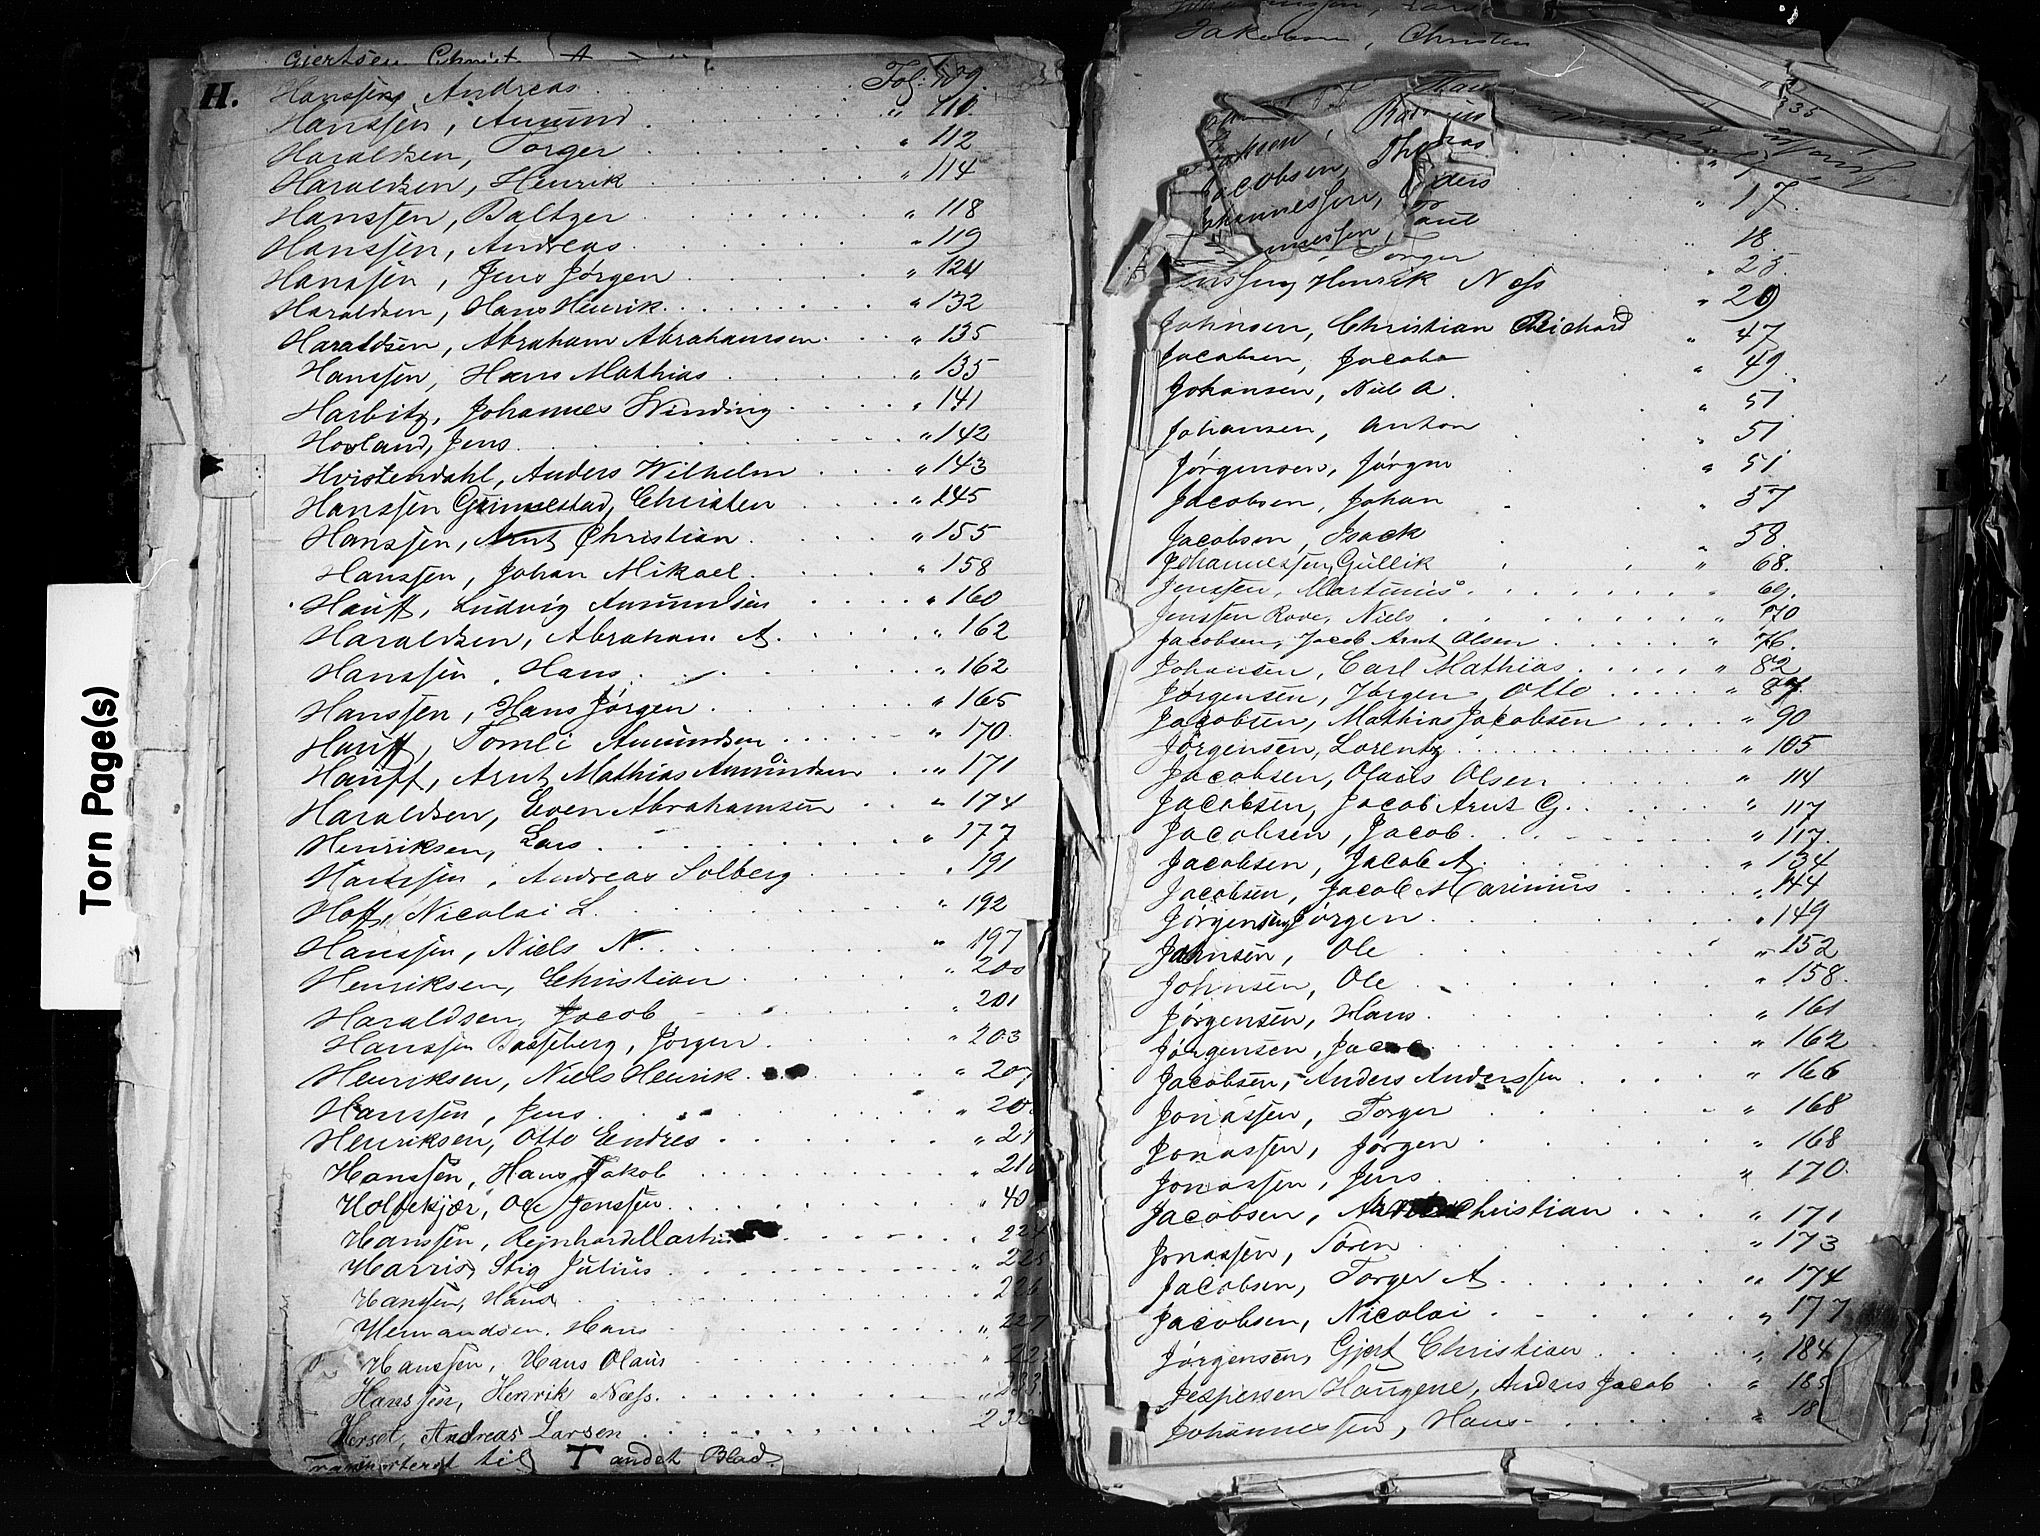 Torn Page(s)
Gjertsen Christ. A
H. Hanssen, Andreas Fol. 109.
Hanssen, Amund " 110.
Haraldsen, Torger " 112
Haraldsen, Henrik " 114
Hanssen, Baltzer " 118
Hanssen, Andreas " 119
Hanssen, Jens Jørgen " 124
Haraldsen, Hans Henrik " 132
Haraldsen, Abraham Abrahamsen " 135
Hanssen, Hans Mathias " 135
Harbitz, Johannes Winding " 141
Hovland, Jens " 142
Hvistendahl, Anders Wilhelm " 143
Hanssen Grimelstad, Christen " 145
Hanssen, Arnt Christian " 155
Hanssen, Johan Mikael " 158
Hauff, Ludvig Amundsen " 160
Haraldsen, Abraham A. " 162
Hanssen, Hans " 162
Hanssen, Hans Jørgen " 165
Hauff, Tomli Amundsen " 170.
Hauff, Arnt Mathias Amundsen " 171
Haraldsen, Even Abrahamsen " 174
Henriksen, Lars " 177
Hanssen, Andreas Solberg " 191
Hoff, Nicolai L. " 192
Hanssen, Niels N. " 197
Henriksen, Christian " 200
Haraldsen, Jacob " 201
Hanssen Basseberg, Jørgen " 203
Henriksen, Niels Henrik " 20
Hanssen, Jens " 20
Henriksen, Otto Endres " 21
Hanssen, Hans Jakob " 210
Holtekjær, Ole Jenssen " 40
Hanssen, Reinhard " 224
Harris, Stig Julius " 225
Hanssen, Hans " 226
Hermandsen, Hans " 227
Hanssen, Hans Olaus " 22
Hanssen, Henrik Næss. " 233.
Herset, Andreas Larsen 23
Transporteret til T andet Blad.
Jakobsen, Christen
335
Jacobsen, Thomas
Johannessen, Anders " 17.
Johannessen, Paul " 18.
Torger " 25.
Jenssen, Henrik Ness " 29
Johnsen, Christian Richard " 47
Jacobsen, Jacob " 49.
Johansen, Niels A. " 51
Johansen, Anton " 51
Jørgensen, Jørgen " 51
Jacobsen, Johan " 57
Jacobsen, Isack " 58.
Johannessen, Gullik " 68.
Jenssen, Martinius " 69.
Jenssen Rove, Niels " 70
Jacobsen, Jacob Arnt Olsen " 76.
Johansen, Carl Mathias " 82
Jørgensen, Jørgen Otto " 87.
Jacobsen, Mathias Jacobsen " 90
Jørgensen, Lorentz " 105
Jacobsen, Olaus Olsen " 114
Jacobsen, Jacob Arnt G. " 117
Jacobsen, Jacob " 117.
Jacobsen, Jacob A. " 134
Jacobsen, Jacob Marinius " 144
Jørgensen, Jørgen " 149
Johnsen, Ole " 152
Johnsen, Ole " 158.
Jørgensen, Hans " 161
Jørgensen, Jacob " 162
Jacobsen, Anders Anderssen " 166
Jonassen, Torger " 168
Jonassen, Jørgen " 168
Jonassen, Jens " 170.
Jacobsen, Christian " 171
Jonassen, Søren " 173
Jacobsen, Torger A. " 174
Jacobsen, Nicolai " 177
Jørgensen, Gjert Christian " 184
Jespersen Haugene, Anders Jacob " 185
Johannessen, Hans " 18